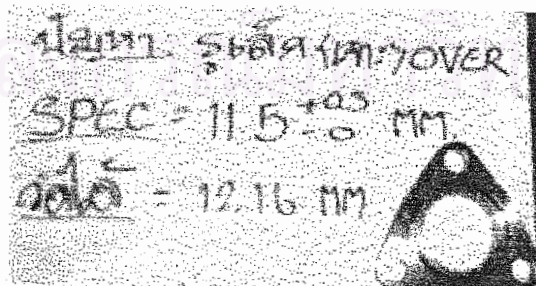 ปัญหา รูเล็ก (เจาะ) OVER
SPEC = 11.5 +0.3 -0 MM.
วัดได้ = 12.16 MM